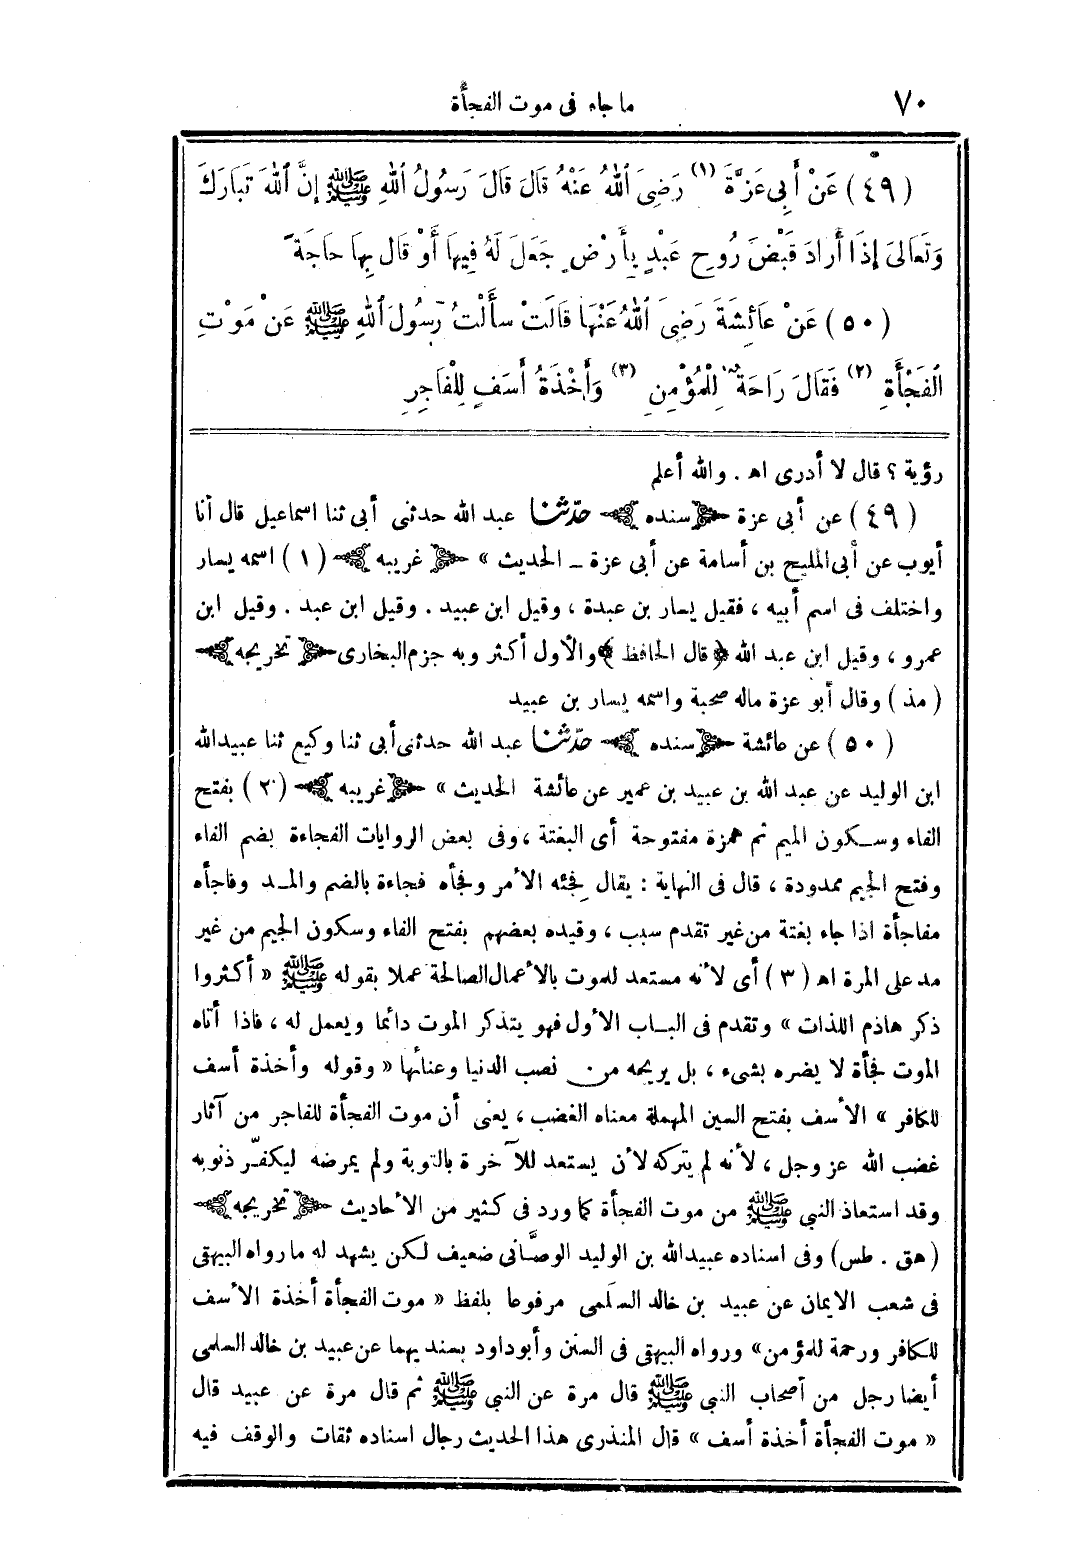 ٧٠
ما جاء فى موت الفجأة
(٤٩) عَنْ أَبِى عَزَّةَ (١) رَضِىَ اللهُ عَنْهُ قَالَ قَالَ رَسُولُ اللهِ ﷺ إِنَّ اللهَ تَبَارَكَ
وَتَعَالَى إِذَا أَرَادَ قَبْضَ رُوحِ عَبْدٍ بِأَرْضٍ جَعَلَ لَهُ فِيهَا أَوْ قَال بِهَا حَاجَةً
(٥٠) عَنْ عَائِشَةَ رَضِىَ اللهُ عَنْهَا قَالَتْ سأَلْتُ رَسُولَ اللهِ ﷺ عَنْ مَوْتِ
الفَجْأَةِ (٢) فَقَالَ رَاحَةٌ لِلْمُؤْمِنِ (٣) وَأَخْذَةُ أَسَفٍ لِلْفَاجِرِ
رؤية ؟ قال لا أدرى اه . والله أعلم
(٤٩) عن أبى عزة ﴿سنده﴾ حدّثنا عبد الله حدثنى أبى ثنا اسماعيل قال أنا
أيوب عن أبى المليح بن أسامة عن أبى عزة ــ الحديث » ﴿غريبه﴾ (١) اسمه يسار
واختلف فى اسم أبيه ، فقيل يسار بن عبدة ، وقيل ابن عبيد . وقيل ابن عبد . وقيل ابن
عمرو ، وقيل ابن عبد الله ﴿قال الحافظ﴾ والأول أكثر وبه جزم البخارى ﴿تخريجه﴾
(مذ) وقال أبو عزة ماله صحبة واسمه يسار بن عبيد
(٥٠) عن عائشة ﴿سنده﴾ حدّثنا عبد الله حدثنى أبى ثنا وكيع ثنا عبيد الله
ابن الوليد عن عبد الله بن عبيد بن عمير عن عائشة الحديث » ﴿غريبه﴾ (٢) بفتح
الفاء وسكون الميم ثم همزة مفتوحة أى البغتة ، وفى بعض الروايات الفجاءة بضم الفاء
وفتح الجيم ممدودة ، قال فى النهاية : يقال فجئه الأمر وفجأه فجاءة بالضم والمد وفاجأه
مفاجأة اذا جاء بغتة من غير تقدم سبب ، وقيده بعضهم بفتح الفاء وسكون الجيم من غير
مد على المرة اه (٣) أى لأنه مستعد للموت بالأعمال الصالحة عملا بقوله ﷺ « أكثروا
ذكر هاذم اللذات » وتقدم فى الباب الأول فهو يتذكر الموت دائما ويعمل له ، فاذا أتاه
الموت فجأة لا يضره بشىء ، بل يريحه من نصب الدنيا وعنائها « وقوله وأخذة أسف
للكافر » الأسف بفتح السين المهملة معناه الغضب ، يعنى أن موت الفجأة للفاجر من آثار
غضب الله عز وجل ، لأنه لم يتركه لأن يستعد للآخرة بالتوبة ولم يمرضه ليكفّر ذنوبه
وقد استعاذ النبي ﷺ من موت الفجأة كما ورد فى كثير من الأحاديث ﴿تخريجه﴾
(هق . طس) وفى اسناده عبيد الله بن الوليد الوصَّافى ضعيف لكن يشهد له ما رواه البيهقى
فى شعب الايمان عن عبيد بن خالد السلَمى مرفوعا بلفظ « موت الفجأة أخذة الأسف
للكافر ورحمة للمؤمن » ورواه البيهقى فى السنن وأبو داود بسنديهما عن عبيد بن خالد السلمى
أيضا رجل من أصحاب النبى ﷺ قال مرة عن النبى ﷺ ثم قال مرة عن عبيد قال
« موت الفجأة أخذة أسف » قال المنذرى هذا الحديث رجال اسناده ثقات والوقف فيه